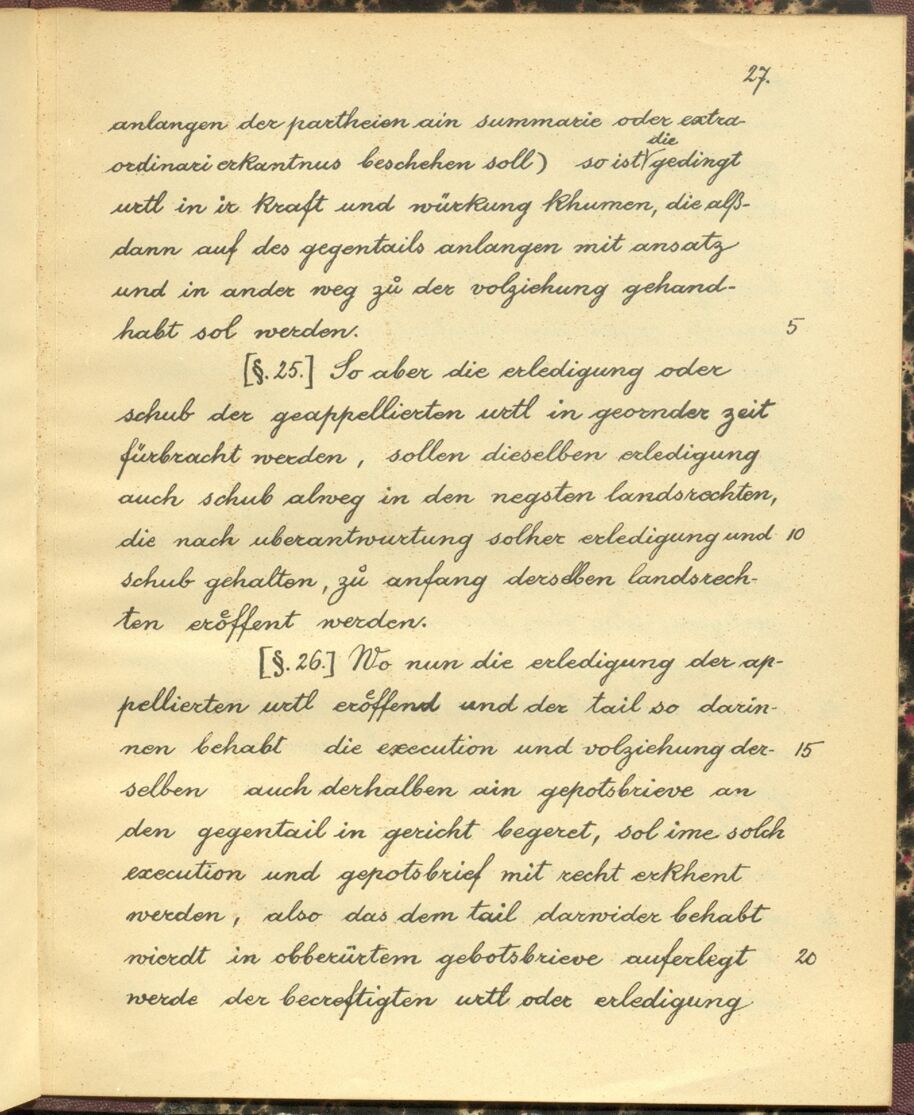 27.
anlangen der partheien ain summarie oder extra-
ordinari erkantnus beschehen soll) so ist die gedingt
urtl in ir kraft und würkung khumen, die alß-
dann auf des gegentails anlangen mit ansatz
und in ander weg zů der volziehung gehand-
habt sol werden. 5
[§. 25.] So aber die erledigung oder
schub der geappellierten urtl in geornder zeit
fürbracht werden, sollen dieselben erledigung
auch schub alweg in den negsten landsrechten,
die nach uberantwurtung solher erledigung und 10
schub gehalten, zů anfang derselben landsrech-
ten eröffent werden.
[§. 26.] Wo nun die erledigung der ap-
pellierten urtl eröffend und der tail so darin-
nen behabt die execution und volziehung der- 15
selben auch derhalben ain gepotsbrieve an
den gegentail in gericht begeret, sol ime solch
execution und gepotsbrief mit recht erkhent
werden, also das dem tail darwider behabt
wierdt in obberürtem gebotsbrieve auferlegt 20
werde der becreftigten urtl oder erledigung